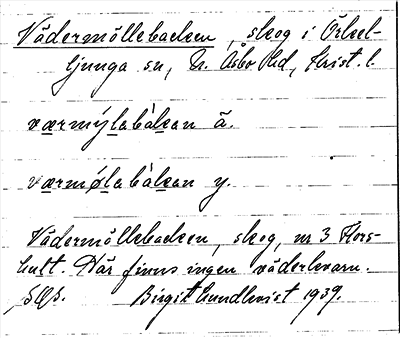 Vädermöllebacken, skog i Örkel-
ljunga sn, N. Åsbo hd, Krist. l.
værmýlabàkan ä.
varmølabàkan y.
Vädermöllebacken, skog, nr 3 Fors-
hult. Där finns ingen väderkvarn.
Birgit Lundkvist 1939.